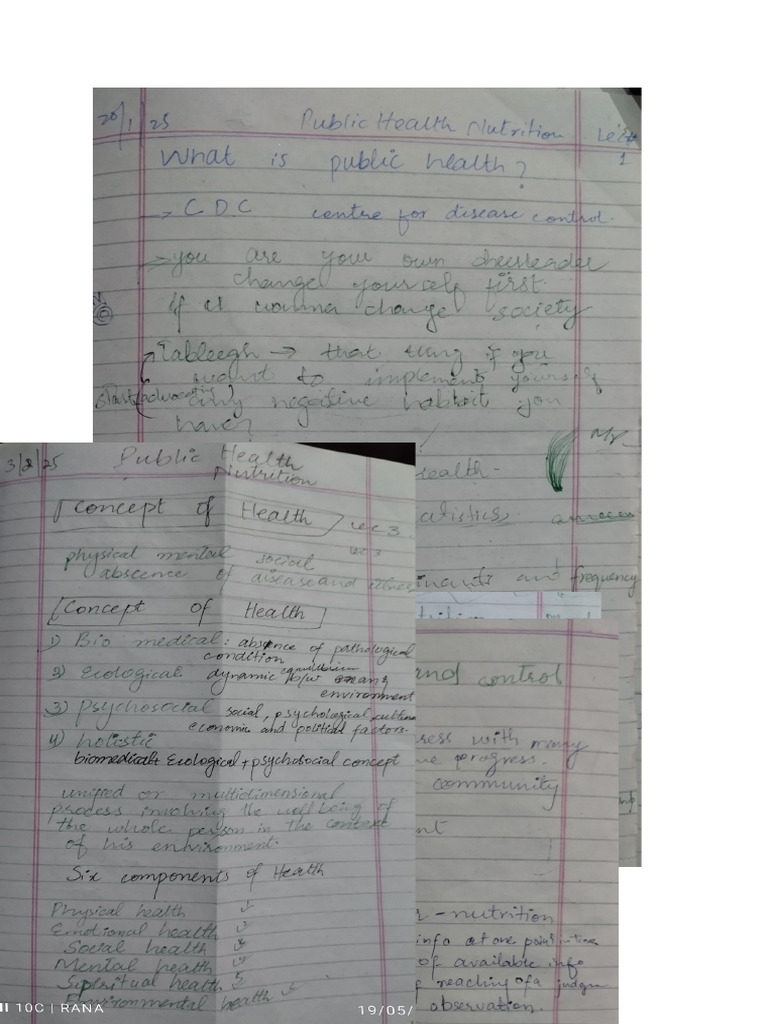 20/1/25 Public Health Nutrition
1
What is public health?
→ CDC centre for disease control.
→ you are your own cheerleader
change yourself first
if u wanna change society
Tableegh → that thing if you
want to implement yourself
start advocating any negative you
have?
ealth -
atistics.
inants and frequency
3/2/25 Public Health
Nutrition
Concept of Health lec 3
lec 3
physical mental social
abscence of disease and
Concept of Health
1) Bio medical: absence of pathological
condition
2) Ecological dynamic equilibrium b/w
environment
3) Psychosocial social, psychological,
economic and political factors.
4) holistic
biomedical+ Ecological + psychosocial concept
unified or multidimensional
process involving the well being of
the whole person in the context
of his environment.
Six components of Health
Physical health
Emotional health
Social health
Mental health
Spiritual health
Environmental health
and control
ress with many
ve progress.
community
nt
r - nutrition
info at one point in time
of available info
reaching of a
observation.
10C | RANA
19/05/